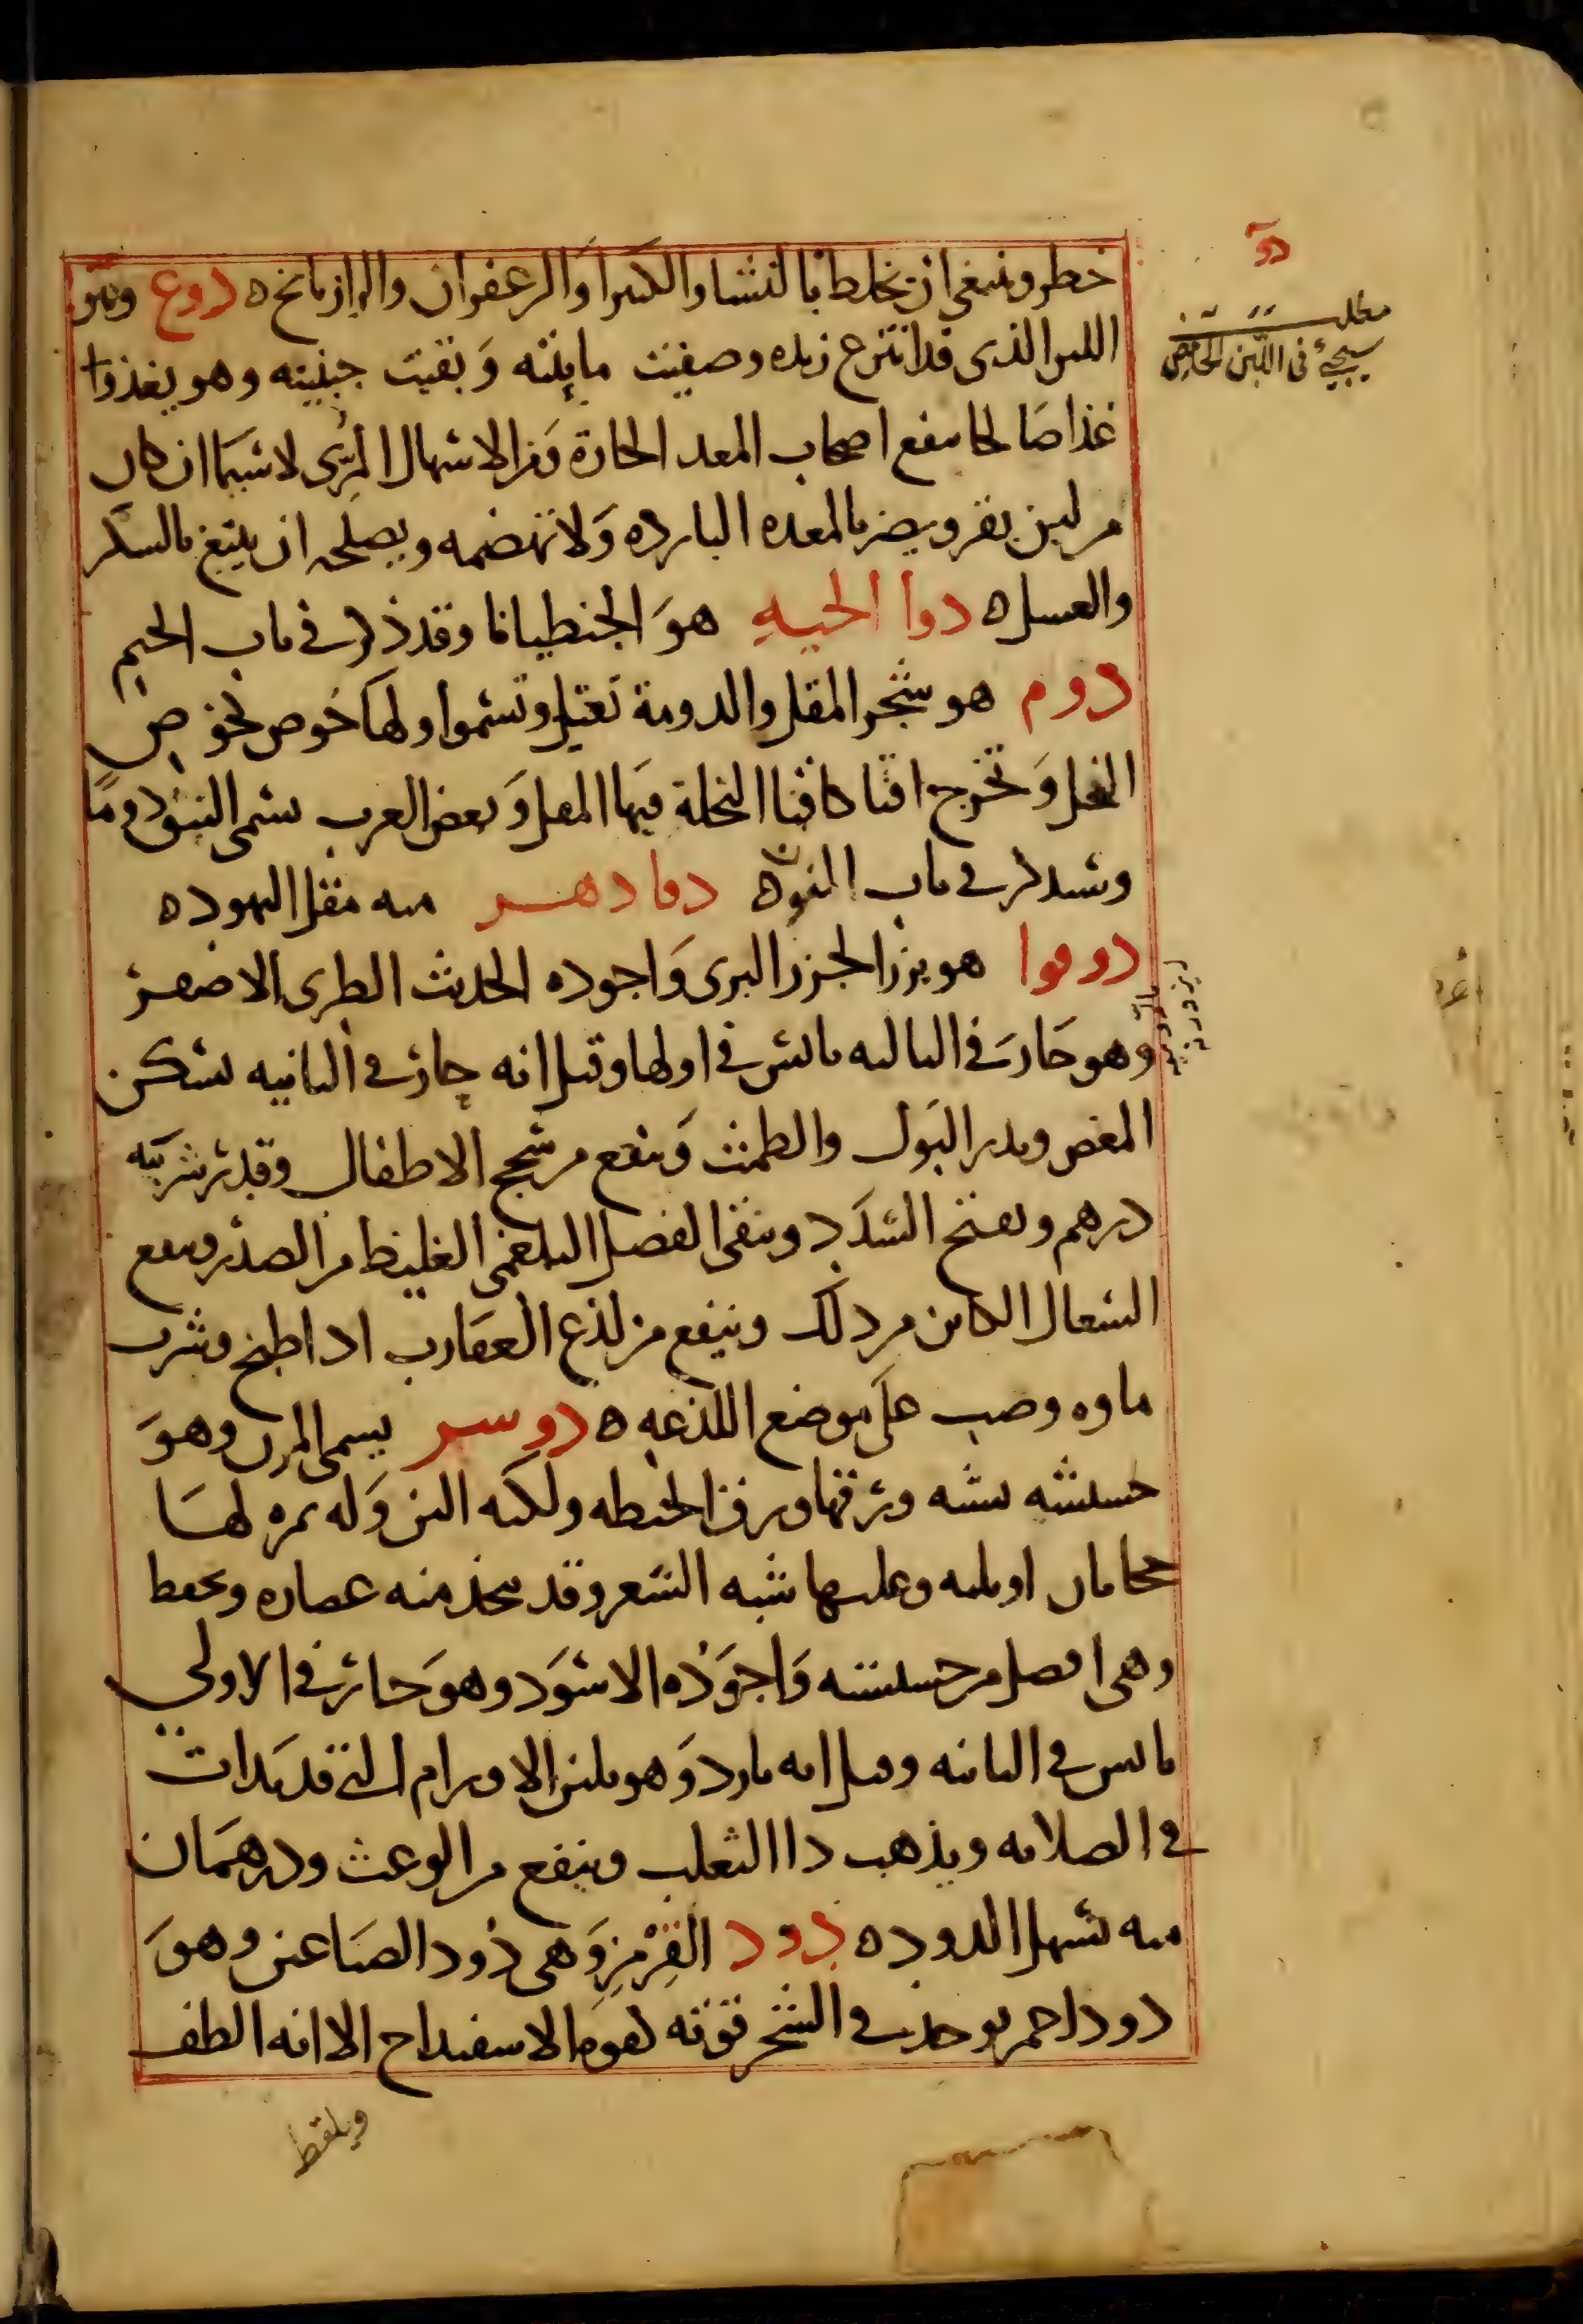 دوآ
مطلب
سيجيء في اللبن الحامض
خطر وينبغي ان يخلط بالنشا والكثيرا والزعفران والرازيانج ه دوغ وهو
اللبن الذي قد انتزع زبده وصفيت مايئته وبقيت جبنيته وهو يغذوا
غذا صالحا ينفع اصحاب المعد الحارة ومن الاسهال المرّي لا سيما ان كان
من لبن بقر ويضر بالمعده البارده ولا تهضمه ويصلحه ان يتبع بالسكر
والعسل ه دوا الحيه هو الجنطيانا وقد ذكر في باب الجيم
دوم هو شجر المقل والدومة تعتبل وتسموا ولها خوص كخوص
النخل وتخرج اقنا كاقنا النخلة فيها المقل وبعض العرب يسمى النبق دوما
وسيذكر في باب النون ه دمادهر منه مقل اليهود ه
دوقوا هو بزر الجزر البري واجوده الحديث الطري الاصفر
وهو حار في الثالثه يابس في اولها وقيل انه حار في الثانيه يسكن
المغص ويدر البول والطمث وينفع من سحج الاطفال وقدر شربته
درهم ويفتح السدد وينقي الفضل البلغمي الغليظ من الصدر وينفع
السعال الكاين من ذلك وينفع من لذع العقارب اذا طبخ وشرب
ماوه وصب على موضع اللذعه ه دوسر يسمى المرن وهو
حشيشه تشبه ورقها ورق الحنطه ولكنه الين وله ثمره لها
حجابان او ثلثه وعليها شبه الشعر وقد يتخذ منه عصاره وتحفظ
وهي افضل من حشيشته واجوده الاسود وهو حار في الاولى
يابس في الثانيه وقيل انه بارد وهو يلين الاورام التي قد بدات
في الصلابه ويذهب داا الثعلب وينفع من الوعث ودرهمان
منه تسهل الدود ه دود القرمز وهي دود الصباغين وهو
دود احمر يوجد في الشجر قوته كقوه الاسفيداج الا انه الطف
ويلقط